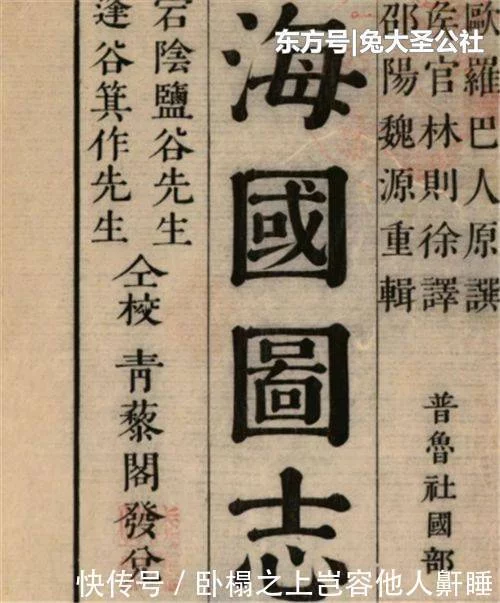 东方号|兔大圣公社
歐羅巴人原譔
矦官林則徐譯
邵陽魏源重輯
普魯社國部
海國圖志
宕陰鹽谷先生
逢谷箕作先生
仝校
青藜閣發兌
快传号 / 卧榻之上岂容他人鼾睡